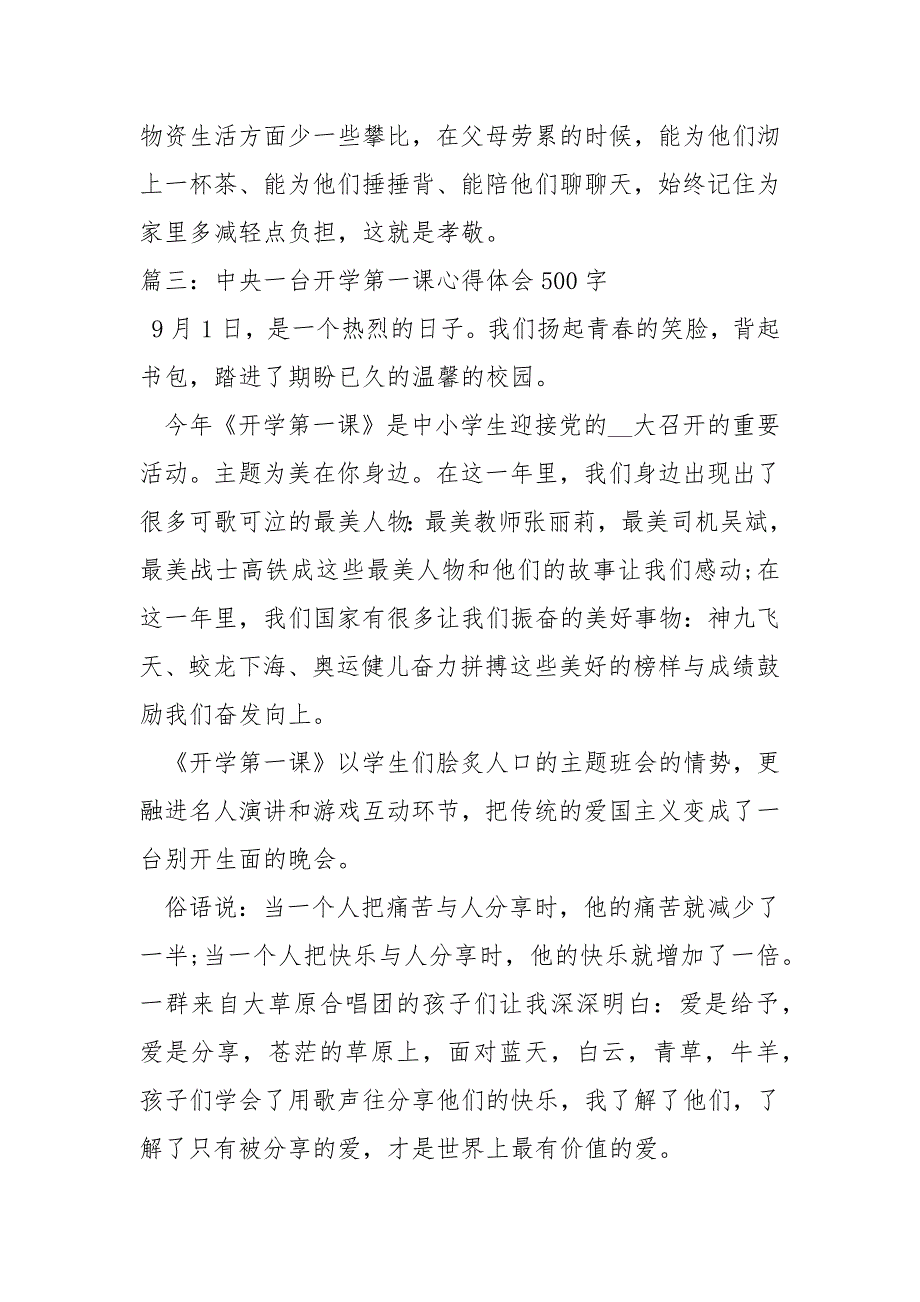 物资生活方面少一些攀比，在父母劳累的时候，能为他们沏
上一杯茶、能为他们捶捶背、能陪他们聊聊天，始终记住为
家里多减轻点负担，这就是孝敬。
篇三：中央一台开学第一课心得体会 500 字
9 月 1 日，是一个热烈的日子。我们扬起青春的笑脸，背起
书包，踏进了期盼已久的温馨的校园。
今年《开学第一课》是中小学生迎接党的__大召开的重要
活动。主题为美在你身边。在这一年里，我们身边出现出了
很多可歌可泣的最美人物：最美教师张丽莉，最美司机吴斌，
最美战士高铁成这些最美人物和他们的故事让我们感动;在
这一年里，我们国家有很多让我们振奋的美好事物：神九飞
天、蛟龙下海、奥运健儿奋力拼搏这些美好的榜样与成绩鼓
励我们奋发向上。
《开学第一课》以学生们脍炙人口的主题班会的情势，更
融进名人演讲和游戏互动环节，把传统的爱国主义变成了一
台别开生面的晚会。
俗语说：当一个人把痛苦与人分享时，他的痛苦就减少了
一半;当一个人把快乐与人分享时，他的快乐就增加了一倍。
一群来自大草原合唱团的孩子们让我深深明白：爱是给予，
爱是分享，苍茫的草原上，面对蓝天，白云，青草，牛羊，
孩子们学会了用歌声往分享他们的快乐，我了解了他们，了
解了只有被分享的爱，才是世界上最有价值的爱。